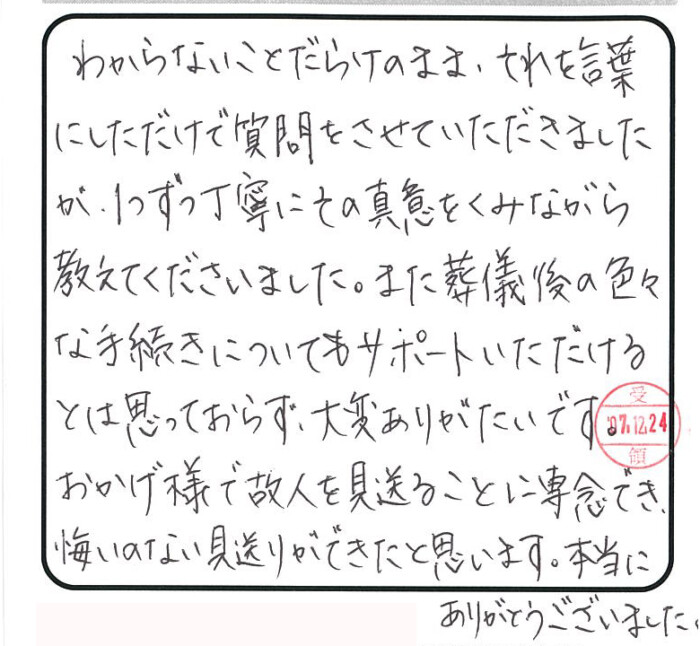 わからないことだらけのまま、それを言葉
にしただけで質問をさせていただきました
が、1つずつ丁寧にその真意をくみながら
教えてくださいました。また葬儀後の色々
な手続きについてもサポートいただける
とは思っておらず、大変ありがたいです
受
'07.12.24
領
おかげ様で故人を見送ることに専念でき、
悔いのない見送りができたと思います。本当に
ありがとうございました。